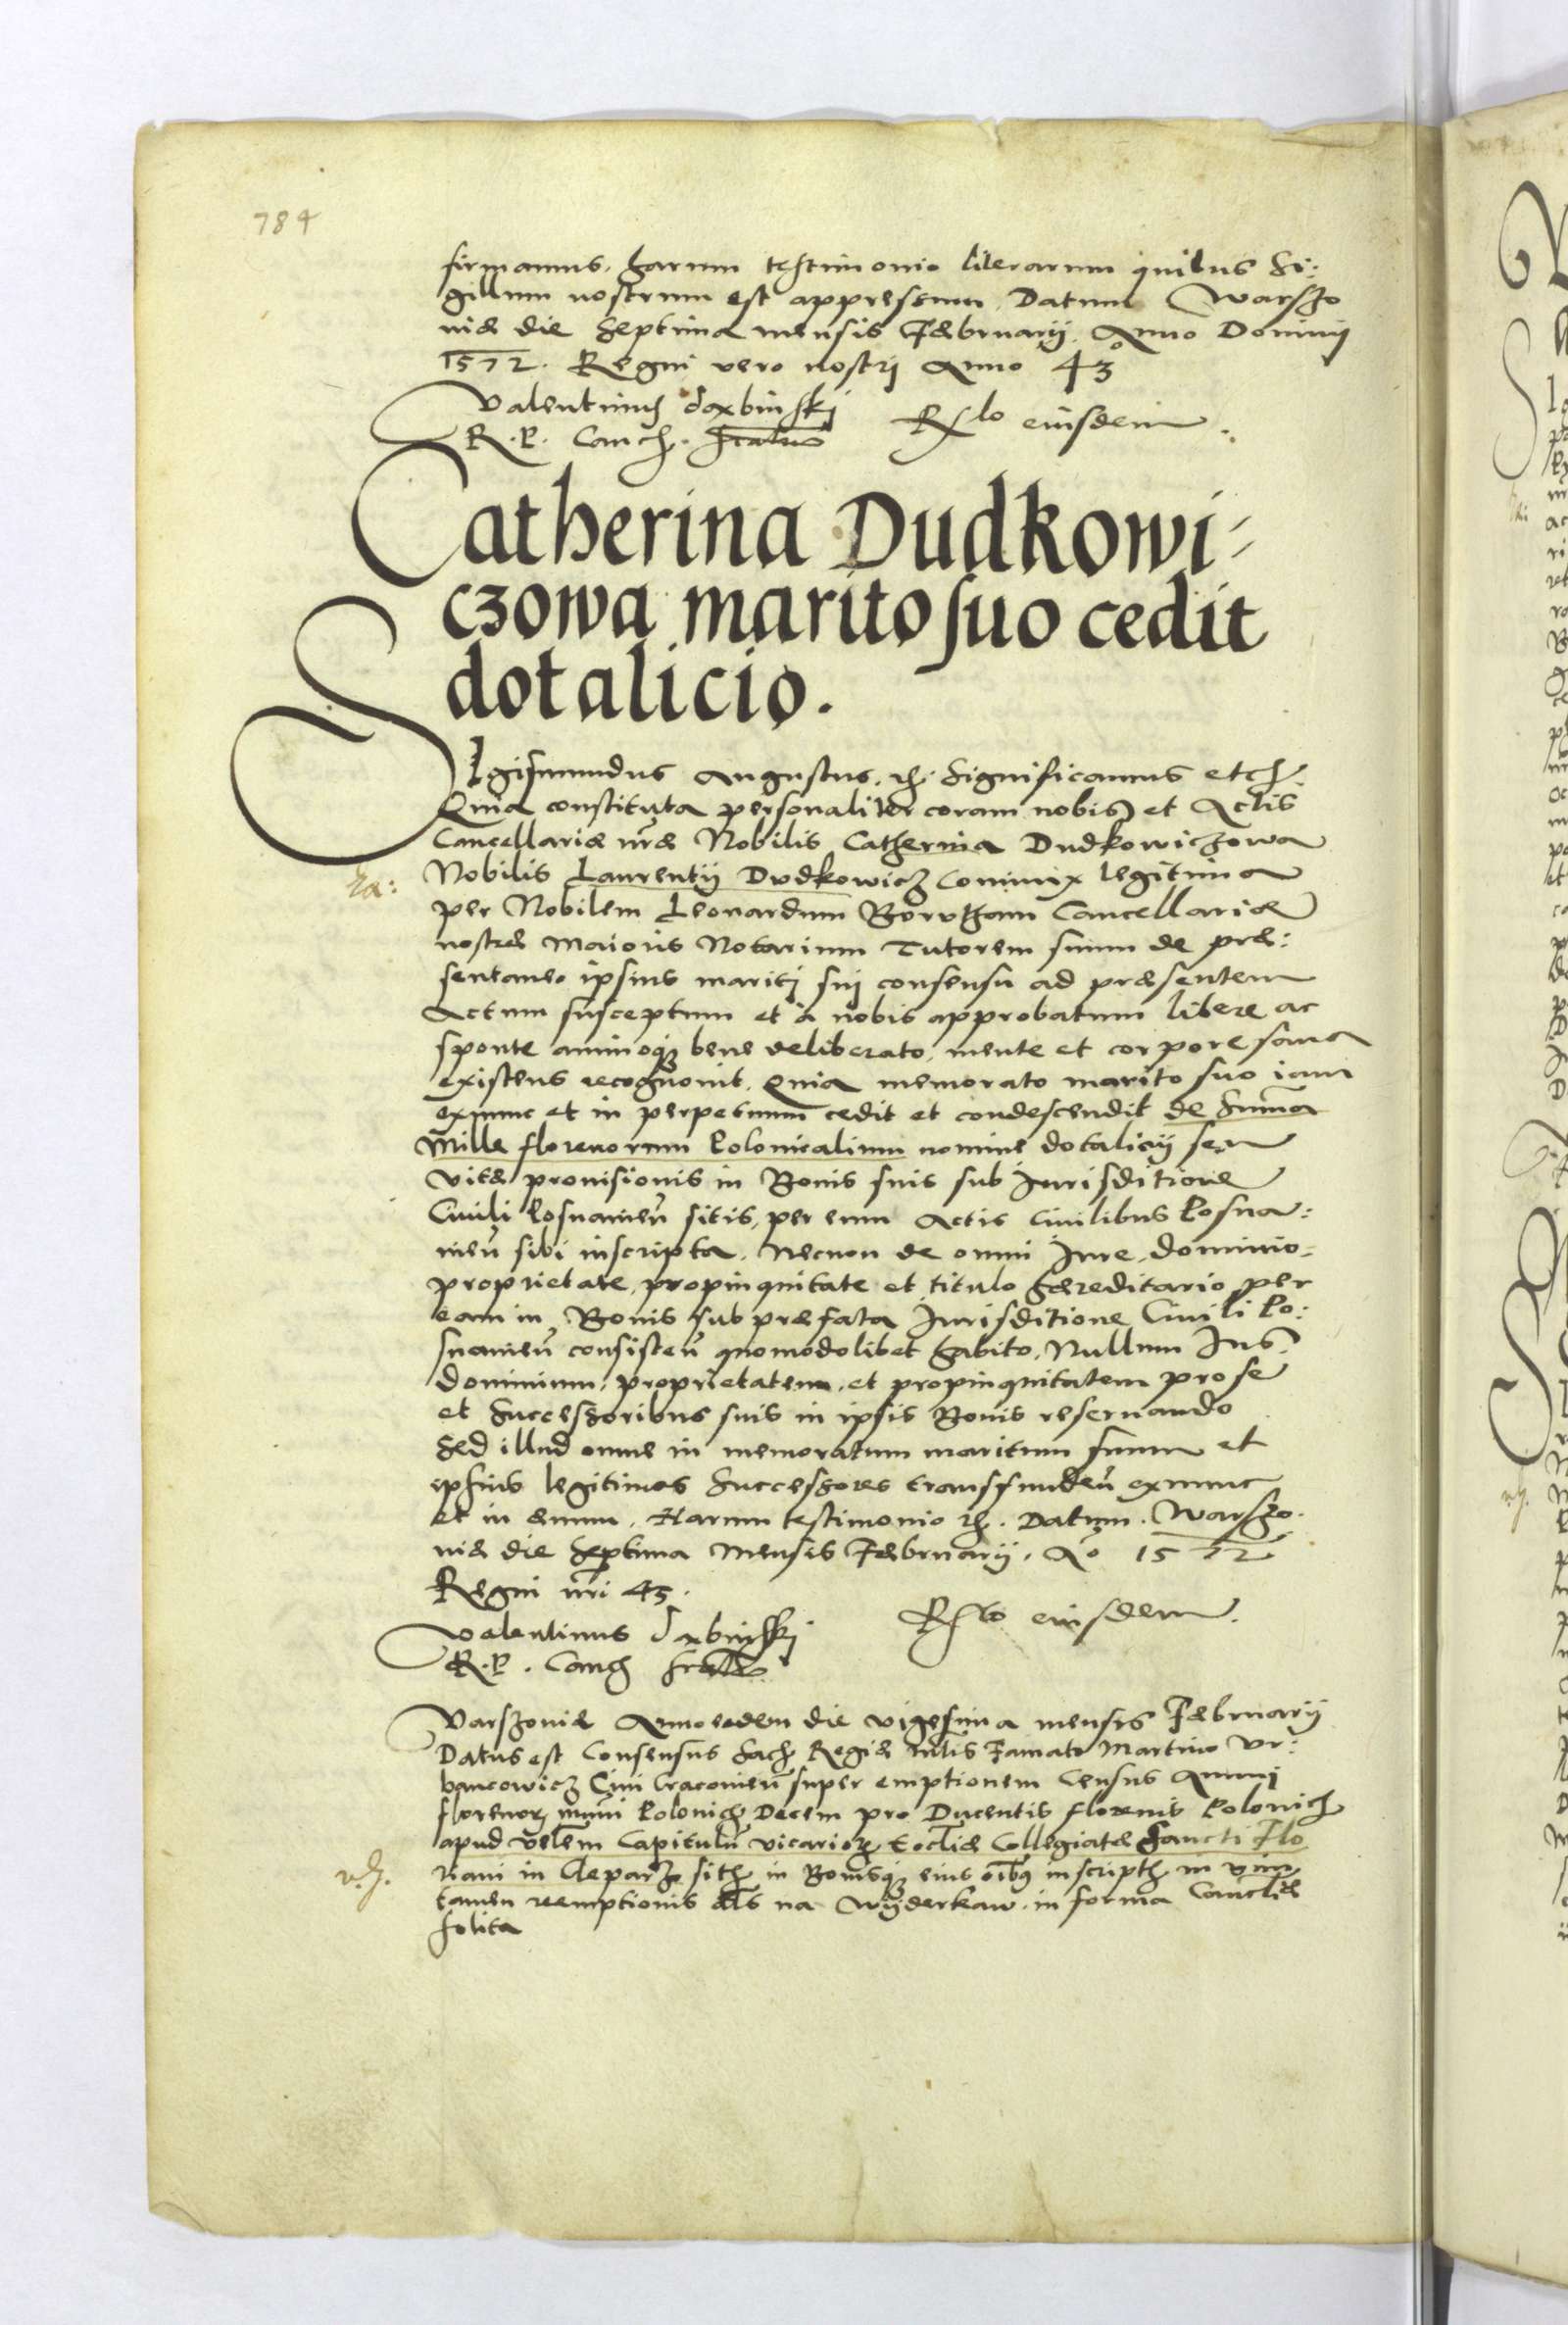 784
firmamus, harum testimonio literarum quibus Si:
gillum nostrum est appressum. Datum Warszo
uiæ die Septima mensis Februarij. Anno Dominij
1572. Regni vero nostrj Anno 43°
Valentinus Dąbinskj Rlo eiusdem.
R. P. Canch.
Catherina Dudkowi-
czowa marito suo cedit
dotalicio.
SIgismundus Augustus. rc. Significamus etc.
Quia constituta personaliter coram nobis et Actis
Cancellariæ nræ Nobilis Catherina Dudkowiczowa
Nobilis Laurentij Dudkowicz Coniunx legitima
za:
per Nobilem Leonardum Cancellariæ
nostræ Maioris Notarium Tutorem suum de præ:
sentaneo ipsius maritj suj consensu ad præsentem
Actum susceptum et à nobis approbatum libere ac
sponte animoq; bene deliberato, mente et corpore sana
existens recognouit. Quia memorato marito suo iam
exnunc et in perpetuum cedit et condescendit de summa
Mille florenorum Polonicalium nomine dotalicij seu
vitæ prouisionis in Bonis suis sub Jurisditione
Ciuili Posnanień sitis, per eum Actis Ciuilibus Posna:
nień sibi inscripta. Necnon de omni Jure, dominio,
proprietate, propinquitate et titulo hæreditario per
eam in Bonis sub præfata Jurisditione Ciuili Po:
snanień consisteń quomodolibet habito, Nullum Jus,
dominium, proprietatem, et propinquitatem pro se
et Successoribus suis in ipsis Bonis reseruando
Sed illud omne in memoratum maritum suum et
ipsius legitimos Successores transfundeń exnunc
et in æuum. Harum testimonio rc. Datum. Warszo.
uiæ die Septima Mensis Februarij. Ao 1572
Regni nri 43.
Valentinus Dąbinskj Rlo eiusdem.
R. P. Canc
Varszouiæ Anno eodem die vigesima mensis Februarij
Datus est Consensus Sacr Regiæ Mtis Famato Martino Vr:
bancowicz Ciui Cracouień super emptionem Census Annuj
florenor Polonich Decem pro Ducentis florenis Polonich
apud Capitulū vicarior Eccliæ Collegiatæ Sancti Flo
v. g.
riani in Cleparz sith in Bonisq; eius oībq inscripth in vim
tamen reemptionis als na Wyderkaw. in forma Cancliæ
solita